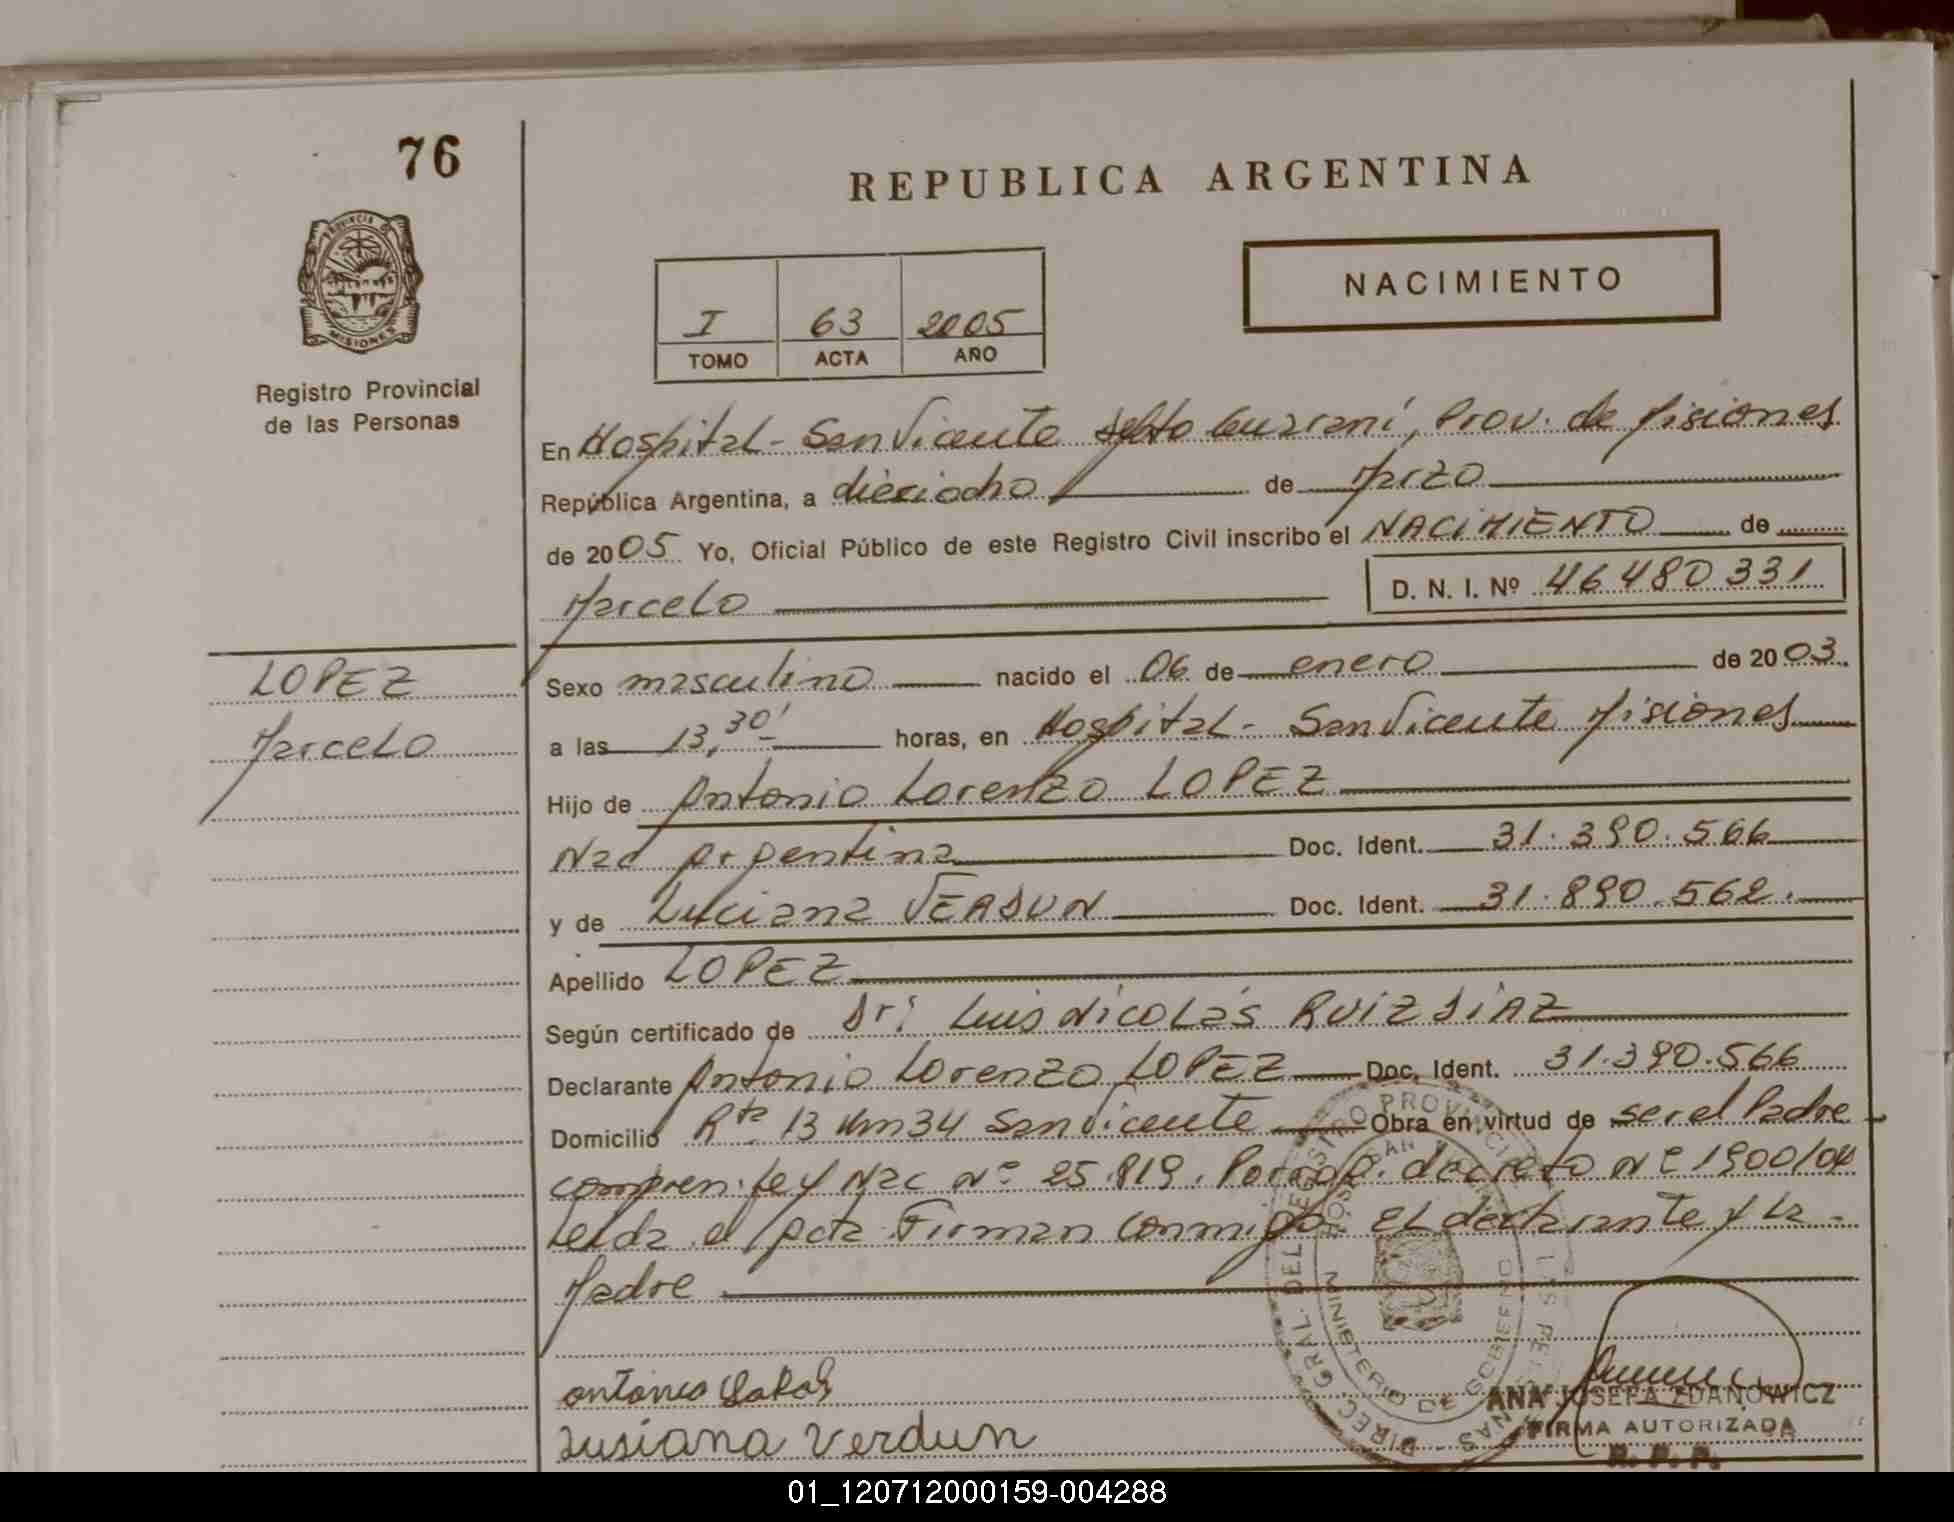 76
REPUBLICA ARGENTINA
PROVINCIA DE
MISIONES
NACIMIENTO
I 63 2005
TOMO ACTA AÑO
Registro Provincial
de las Personas
En Hospital - San Vicente Dpto Guaraní, Prov. de Misiones
República Argentina, a dieciocho de Marzo
de 2005 Yo, Oficial Público de este Registro Civil inscribo el NACIMIENTO de
Marcelo D. N. I. Nº 46480331
LOPEZ
Marcelo
Sexo masculino nacido el 06 de enero de 2003
a las 13,30' horas, en Hospital - San Vicente Misiones
Hijo de Antonio Lorenzo LOPEZ
Nac Argentina Doc. Ident. 31.390.566
y de Luciana VERDUN Doc. Ident. 31.890.562.
Apellido LOPEZ
Según certificado de Dr: Luis Nicolás RUIZ DIAZ
Declarante Antonio Lorenzo LOPEZ Doc. Ident. 31.390.566
Domicilio Rta 13 Km 34 San Vicente Obra en virtud de ser el Padre
Ley Nac Nº 25.819. decreto Nº 1900/04
Leida el Acta Firman conmigo el declarante y La -
Madre
DIREC. GRAL. DEL REGISTRO PROVINCIAL DE LAS PERSONAS
MINISTERIO DE GOBIERNO
antonio
Lusiana Verdun
ANA JOSEFA ZDANOWICZ
FIRMA AUTORIZADA
R. P. P.
01_120712000159-004288